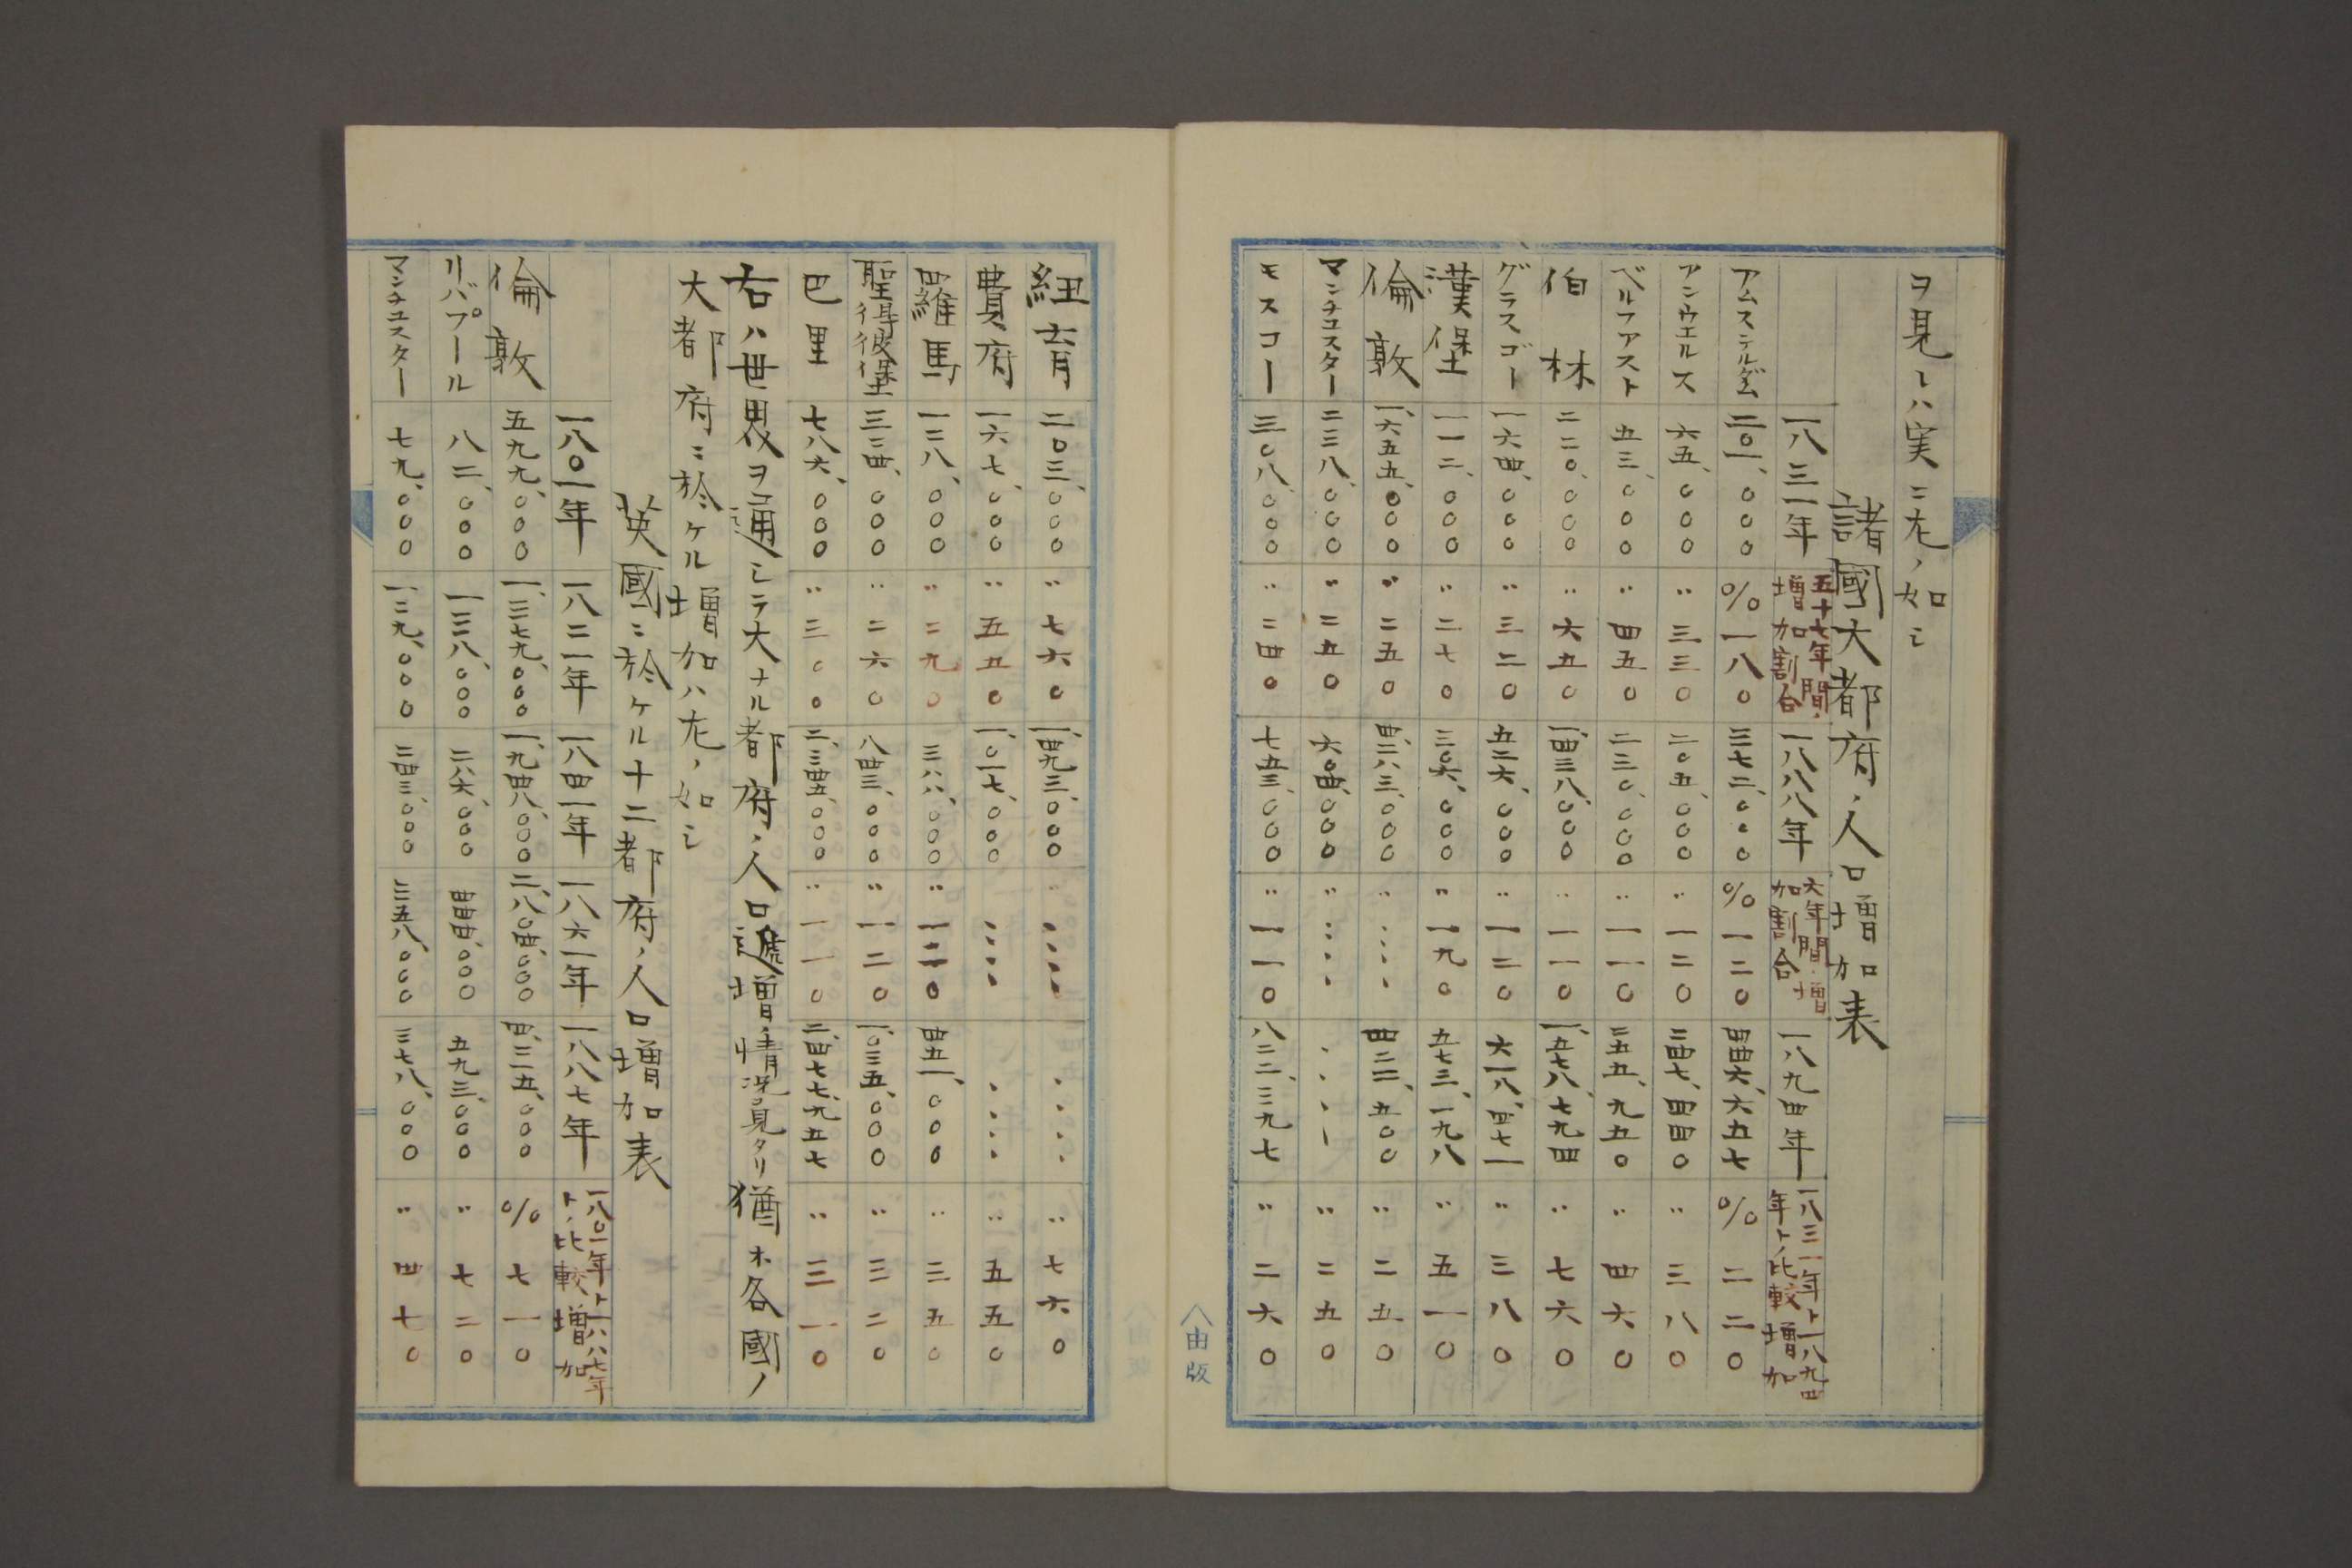 ヲ見レハ実ニ左ノ如シ
諸國大都府ノ人口増加表
一八三一年 五十七年間ノ増加割合 一八八八年 六年間ノ増加割合 一八九四年 一八三一年ト一八九四年トノ比較増加
アムステルダム 二〇一、〇〇〇 % 一八〇 三七二、〇〇〇 % 一二〇 四四六、六五七 % 二二〇
アンウエルス 六五、〇〇〇 〃 三三〇 二〇五、〇〇〇 〃 一二〇 二四七、四四〇 〃 三八〇
ベルファスト 五三、〇〇〇 〃 四五〇 二三〇、〇〇〇 〃 一一〇 二五五、九五〇 〃 四六〇
伯林 二二〇、〇〇〇 〃 六五〇 一、四三八、〇〇〇 〃 一一〇 一、五七八、七九四 〃 七六〇
グラスゴー 一六四、〇〇〇 〃 三二〇 五二六、〇〇〇 〃 一二〇 六一八、四七一 〃 三八〇
漢堡 一一二、〇〇〇 〃 二七〇 三〇六、〇〇〇 〃 一九〇 五七三、一九八 〃 五一〇
倫敦 一、六五五、〇〇〇 〃 二五〇 四、二八三、〇〇〇 〃 …… 四二二一、五〇〇 〃 二五〇
マンチユスター 二三八、〇〇〇 〃 二五〇 六〇四、〇〇〇 〃 …… …… 〃 二五〇
モスコー 三〇八、〇〇〇 〃 二四〇 七五三、〇〇〇 〃 一一〇 八二二、三九七 〃 二六〇
紐育 二〇三、〇〇〇 〃 七六〇 一、四九三、〇〇〇 〃 …… …… 〃 七六〇
費府 一六七、〇〇〇 〃 五五〇 一、〇一七、〇〇〇 〃 …… …… 〃 五五〇
羅馬 一三八、〇〇〇 〃 二九〇 三八八、〇〇〇 〃 一二〇 四五一、〇〇〇 〃 三五〇
聖得彼堡 三三四、〇〇〇 〃 二六〇 八四三、〇〇〇 〃 一二〇 一、〇三五、〇〇〇 〃 三二〇
巴里 七八六、〇〇〇 〃 三〇〇 二、三四五、〇〇〇 〃 一一〇 二、四七七、九五七 〃 三一〇
右ハ世界ヲ通シテ大ナル都府ノ人口逓増ノ情況ヲ見タリ猶ホ各國ノ
大都府ニ於ケル増加ハ左ノ如シ
英國ニ於ケル十二都府ノ人口増加表
一八〇一年 一八二一年 一八四一年 一八六一年 一八八七年 一八〇一年ト一八八七年トノ比較増加
倫敦 九五九、〇〇〇 一、三七九、〇〇〇 一、九四八、〇〇〇 二、八〇四、〇〇〇 四、二一五、〇〇〇 % 七一〇
リバプール 八二、〇〇〇 一三八、〇〇〇 二八六、〇〇〇 四四四、〇〇〇 五九三、〇〇〇 〃 七二〇
マンチユスター 七九、〇〇〇 一二九、〇〇〇 二四三、〇〇〇 三五八、〇〇〇 三七八、〇〇〇 〃 四七〇